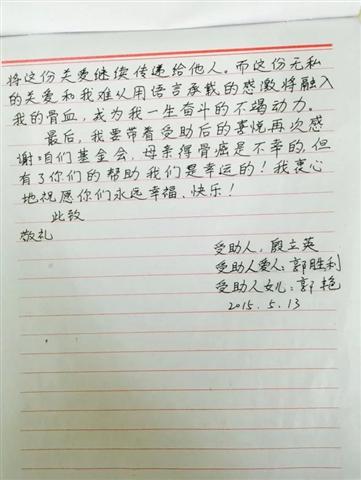 将这份关爱继续传递给他人。而这份无私
的关爱和我难以用语言承载的感激将融入
我的骨血，成为我一生奋斗的不竭动力。
最后，我要带着受助后的喜悦再次感
谢咱们基金会，母亲得骨癌是不幸的，但
有了你们的帮助我们是幸运的！我衷心
地祝愿你们永远幸福、快乐！
此致
敬礼
受助人：殷立英
受助人爱人：郭胜利
受助人女儿：郭艳
2015.5.13